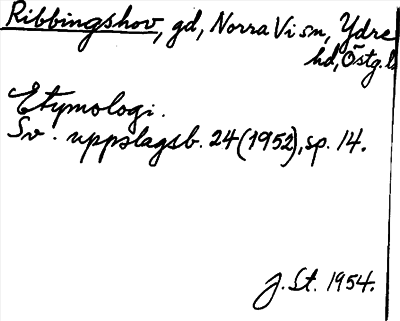 Ribbingshov, gd, Norra Vi sn, Ydre
hd, Östg. l.
Etymologi.
Sv. uppslagsb. 24 (1952), sp. 14.
J. St. 1954.